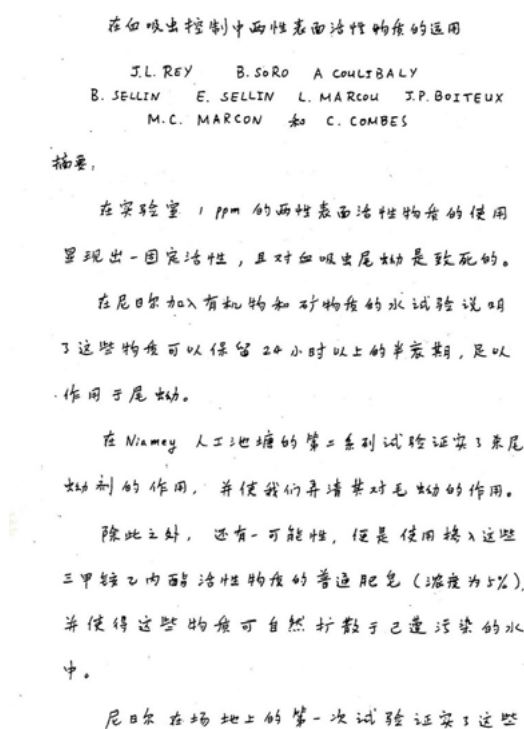 在血吸虫控制中两性表面活性物质的运用
J.L. REY B. SORO A COULIBALY
B. SELLIN E. SELLIN L. MARCOU J.P. BOITEUX
M.C. MARCON 和 C. COMBES
摘要,
在实验室 1 ppm 的两性表面活性物质的使用
显现出一固定活性,且对血吸虫尾蚴是致死的。
在尼日尔加入有机物和矿物质的水试验说明
了这些物质可以保留 24 小时以上的半衰期,足以
作用于尾蚴。
在 Niamey 人工池塘的第二系列试验证实了杀尾
蚴剂的作用,并使我们弄清其对毛蚴的作用。
除此之外,还有一可能性,便是使用掺入这些
三甲铵乙内酯活性物质的普通肥皂(浓度为5%),
并使得这些物质可自然扩散于已遭污染的水
中。
尼日尔在场地上的第一次试验证实了这些